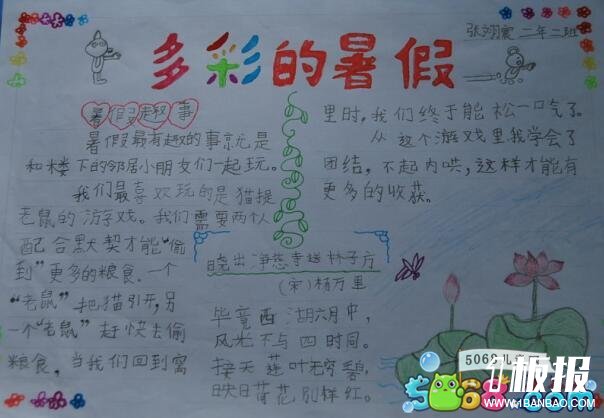 多彩的暑假
二年二班
暑假趣事
暑假最有趣的事就是
和楼下的邻居小朋友们一起玩。
我们最喜欢玩的是猫捉
老鼠的游戏。我们需要两个人
配合默契才能“偷
到”更多的粮食。一个
“老鼠”把猫引开,另
一个“老鼠”赶快去偷
粮食,当我们回到窝
里时,我们终于能松一口气了。
从这个游戏里我学会了
团结,不起内哄,这样才能有
更多的收获。
晓出净慈寺送林子方
(宋)杨万里
毕竟西湖六月中,
风光不与四时同。
接天莲叶无穷碧,
映日荷花别样红。
5068儿
1板报
5068.com
WWW.1BANBAO.COM